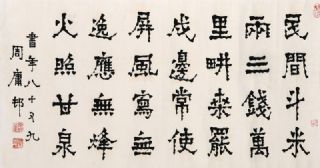 民間斗米
兩三錢萬
里畊桒罷
戍邊常使
屏風寫無
逸應無烽
火照甘泉
書年八十又九
周庸邨